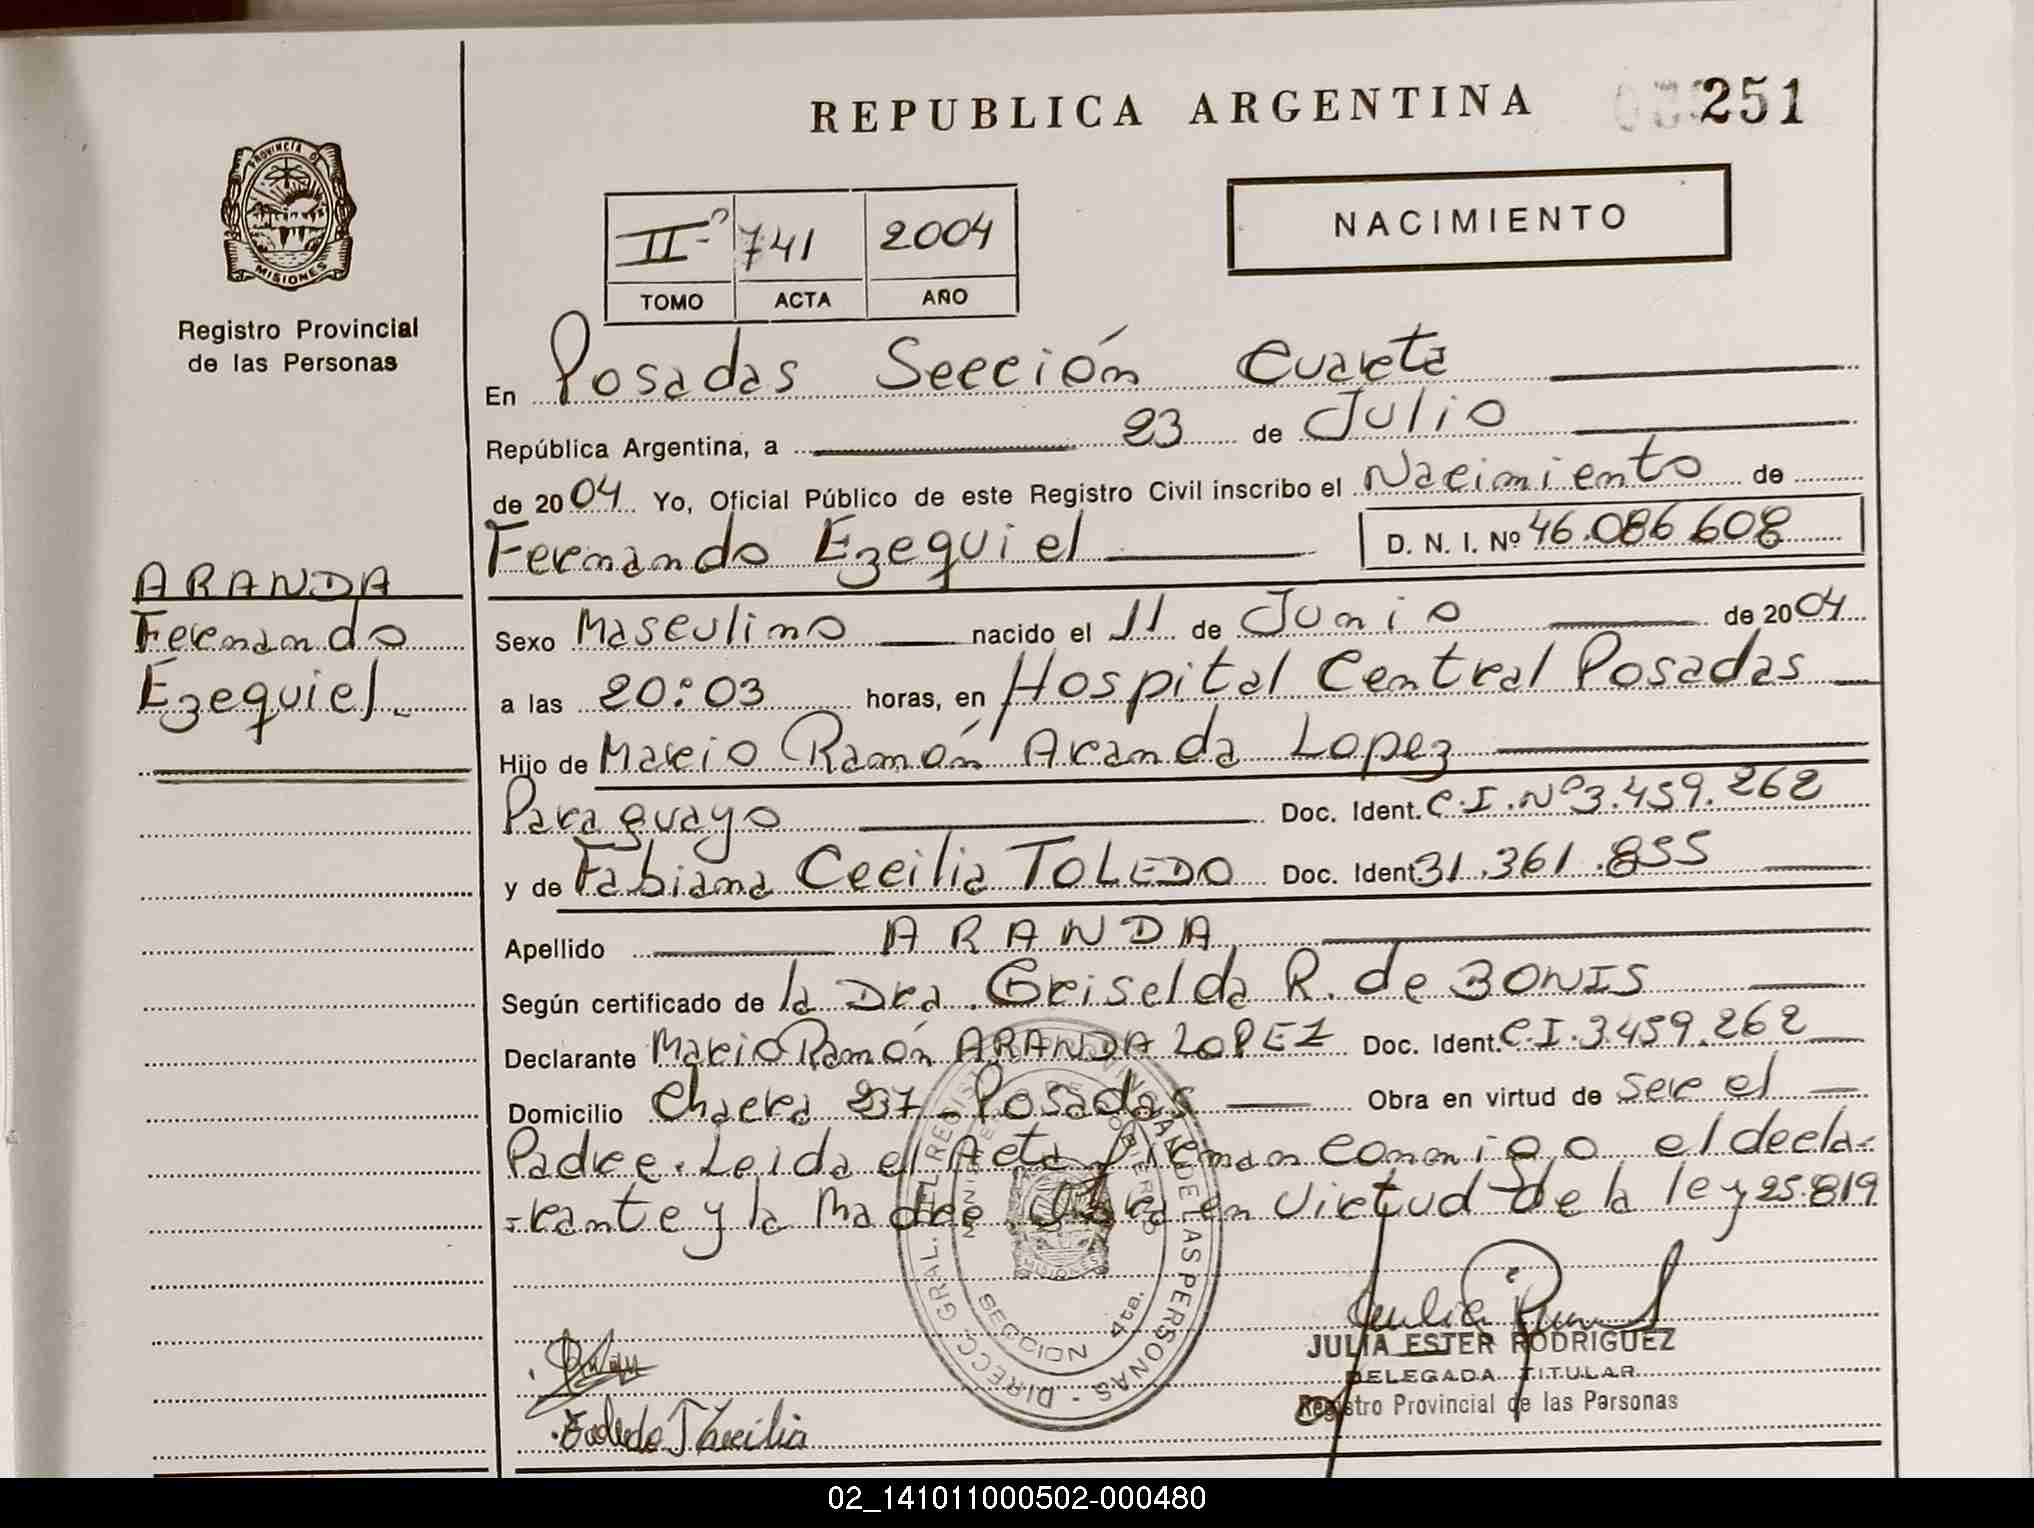 REPUBLICA ARGENTINA
251
PROVINCIA DE
MISIONES
Registro Provincial
de las Personas
IIº 741 2004
TOMO ACTA AÑO
NACIMIENTO
En Posadas Sección Cuarta
República Argentina, a 23 de Julio
de 2004 Yo, Oficial Público de este Registro Civil inscribo el Nacimiento de
Fernando Ezequiel D. N. I. Nº 46.086.608
ARANDA
Fernando
Ezequiel
Sexo Masculino nacido el 11 de Junio de 2004
a las 20:03 horas, en Hospital Central Posadas
Hijo de Mario Ramón Aranda Lopez
Paraguayo Doc. Ident. C.I.Nº3.459.262
y de Fabiana Cecilia TOLEDO Doc. Ident 31.361.855
Apellido ARANDA
Según certificado de la Dra. Griselda R. de BONIS
Declarante Mario Ramón ARANDA LOPEZ Doc. Ident. C.I.3.459.262
Domicilio Chacra 237 - Posadas Obra en virtud de ser el
Padre. Leida el Acta firman conmigo el decla-
-rante y la Madre. Obra en virtud de la ley 25.819
DIRECC. GRAL. DEL REGISTRO PROVINCIAL DE LAS PERSONAS -
MINISTERIO DE GOBIERNO
MISIONES
SECCION 4ta.
JULIA ESTER RODRIGUEZ
DELEGADA TITULAR
Registro Provincial de las Personas
Toledo F Cecilia
02_141011000502-000480